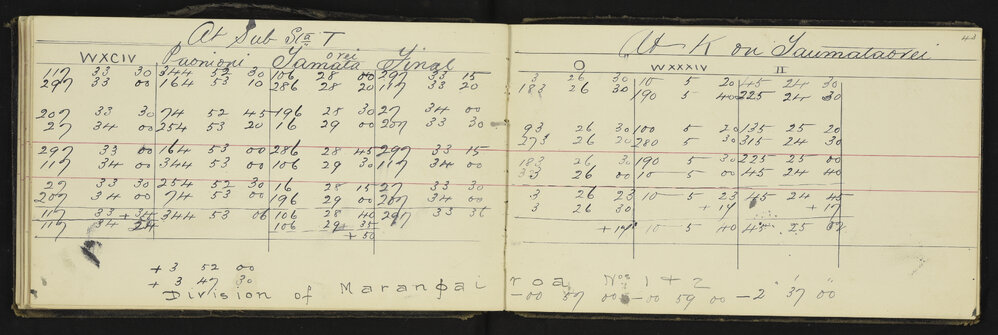 At Sub Sta T
WXCIV Paonioni Tamata orei Final
117 33 30 344 52 30 106 28 00 297 33 15
297 33 00 164 53 10 286 28 20 117 33 20
207 33 30 74 52 45 196 28 30 27 34 00
27 34 00 254 53 20 16 29 00 207 33 30
297 33 00 164 53 00 286 28 45 297 33 15
117 34 00 344 53 00 106 29 30 117 34 00
27 33 30 254 52 30 16 28 15 27 33 30
207 34 00 74 53 00 196 29 00 207 34 00
117 33 + 34 344 53 06 106 28 40 297 33 36
117 34 24 106 29 + 35
+ 50
+ 3 52 00
+ 3 47 30
Division of Maran
43
At K on Taumataorei
O WXXXIV II
3 26 30 10 5 20 45 24 30
183 26 30 190 5 40 225 24 30
93 26 30 100 5 20 135 25 20
273 26 20 280 5 30 315 24 30
183 26 30 190 5 30 225 25 00
26 00 10 5 00 45 24 40
3 26 23 10 5 23 45 24 45
3 26 30 + 17 + 17
+ 17 10 5 40 45 25 02
roa Nos 1 + 2
-00 57 00 -00 59 00 -2° 37' 00"